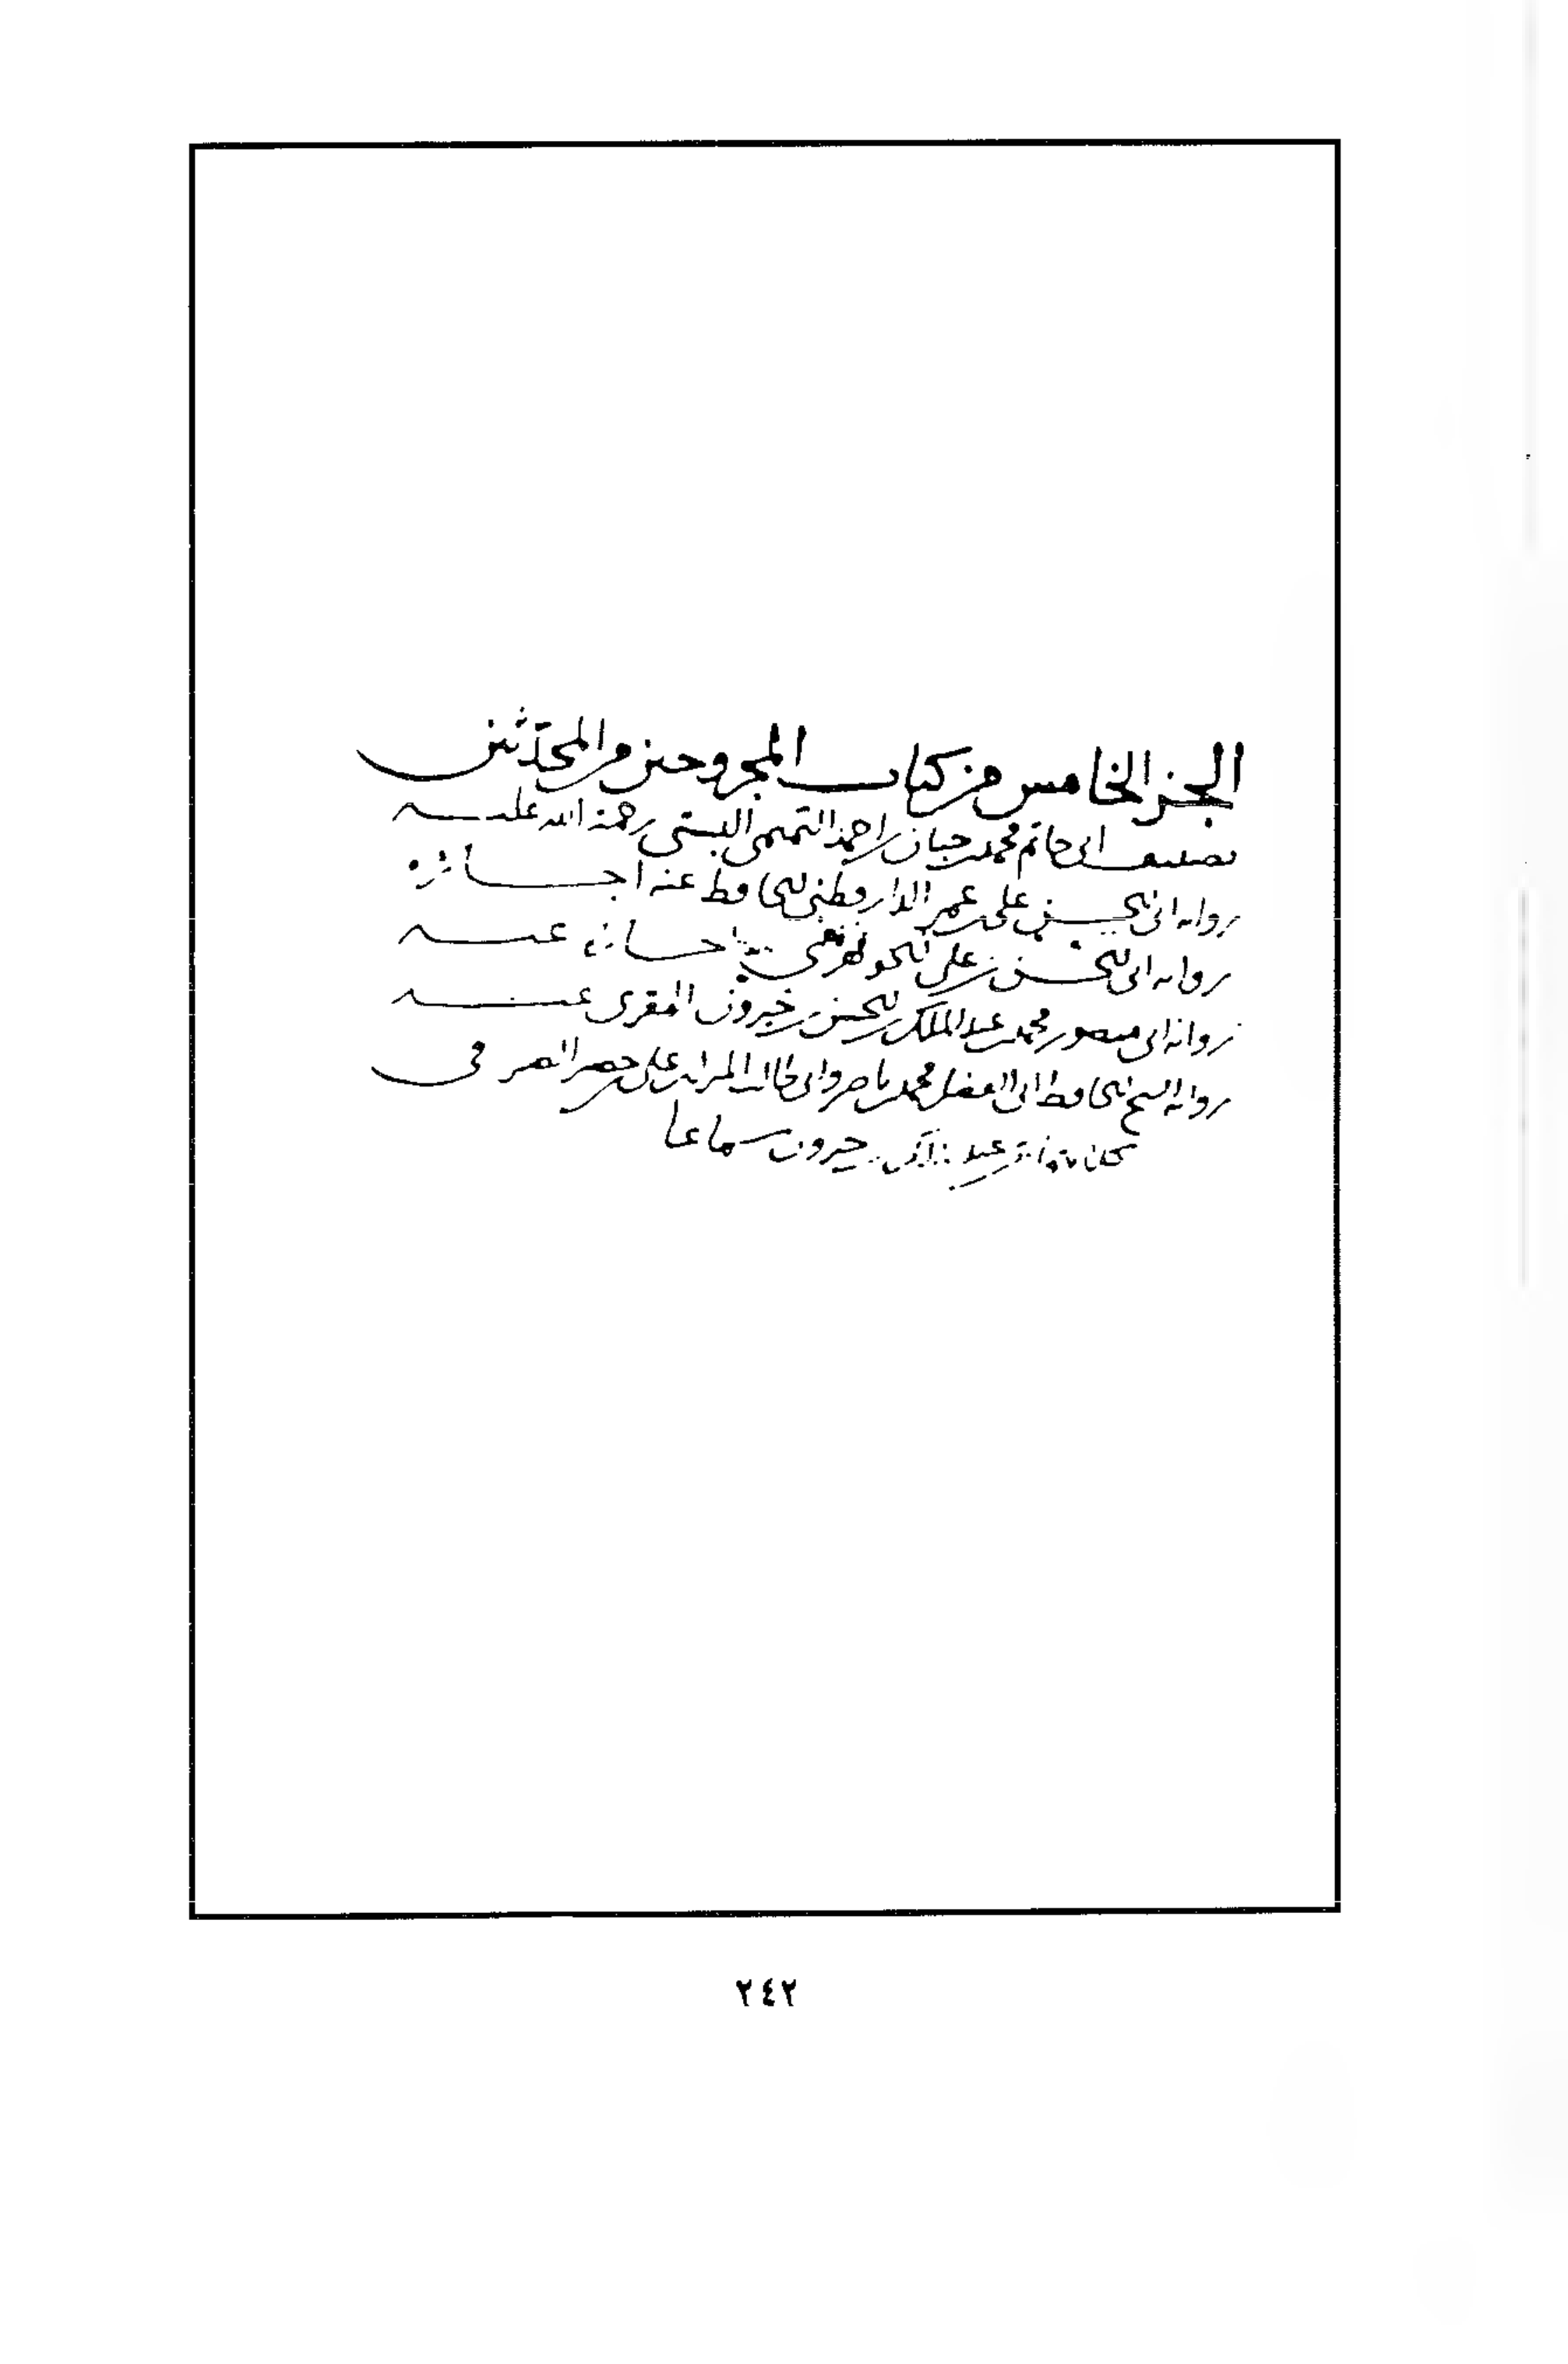 الجز الخامس من كتاب المجروحين من المحدّثين
تصنيف ابى حاتم محمد بن حبان بن احمد التميمى البستى رحمة الله عليه
روايه ابى الحسن على بن عمر الدارقطنى الحافظ عنه اجازه
روايه ابى الحسن بن على الجوهرى عنه
روايه ابى منصور محمد بن عبد الملك بن الحسن بن خيرون المقرى عنه
روايه الشيخ الحافظ ابى الفضل محمد بن ناصر وابى طالب المبارك بن على بن خضير الصيرفى
عبد خيرون سماعا
٢٤٢